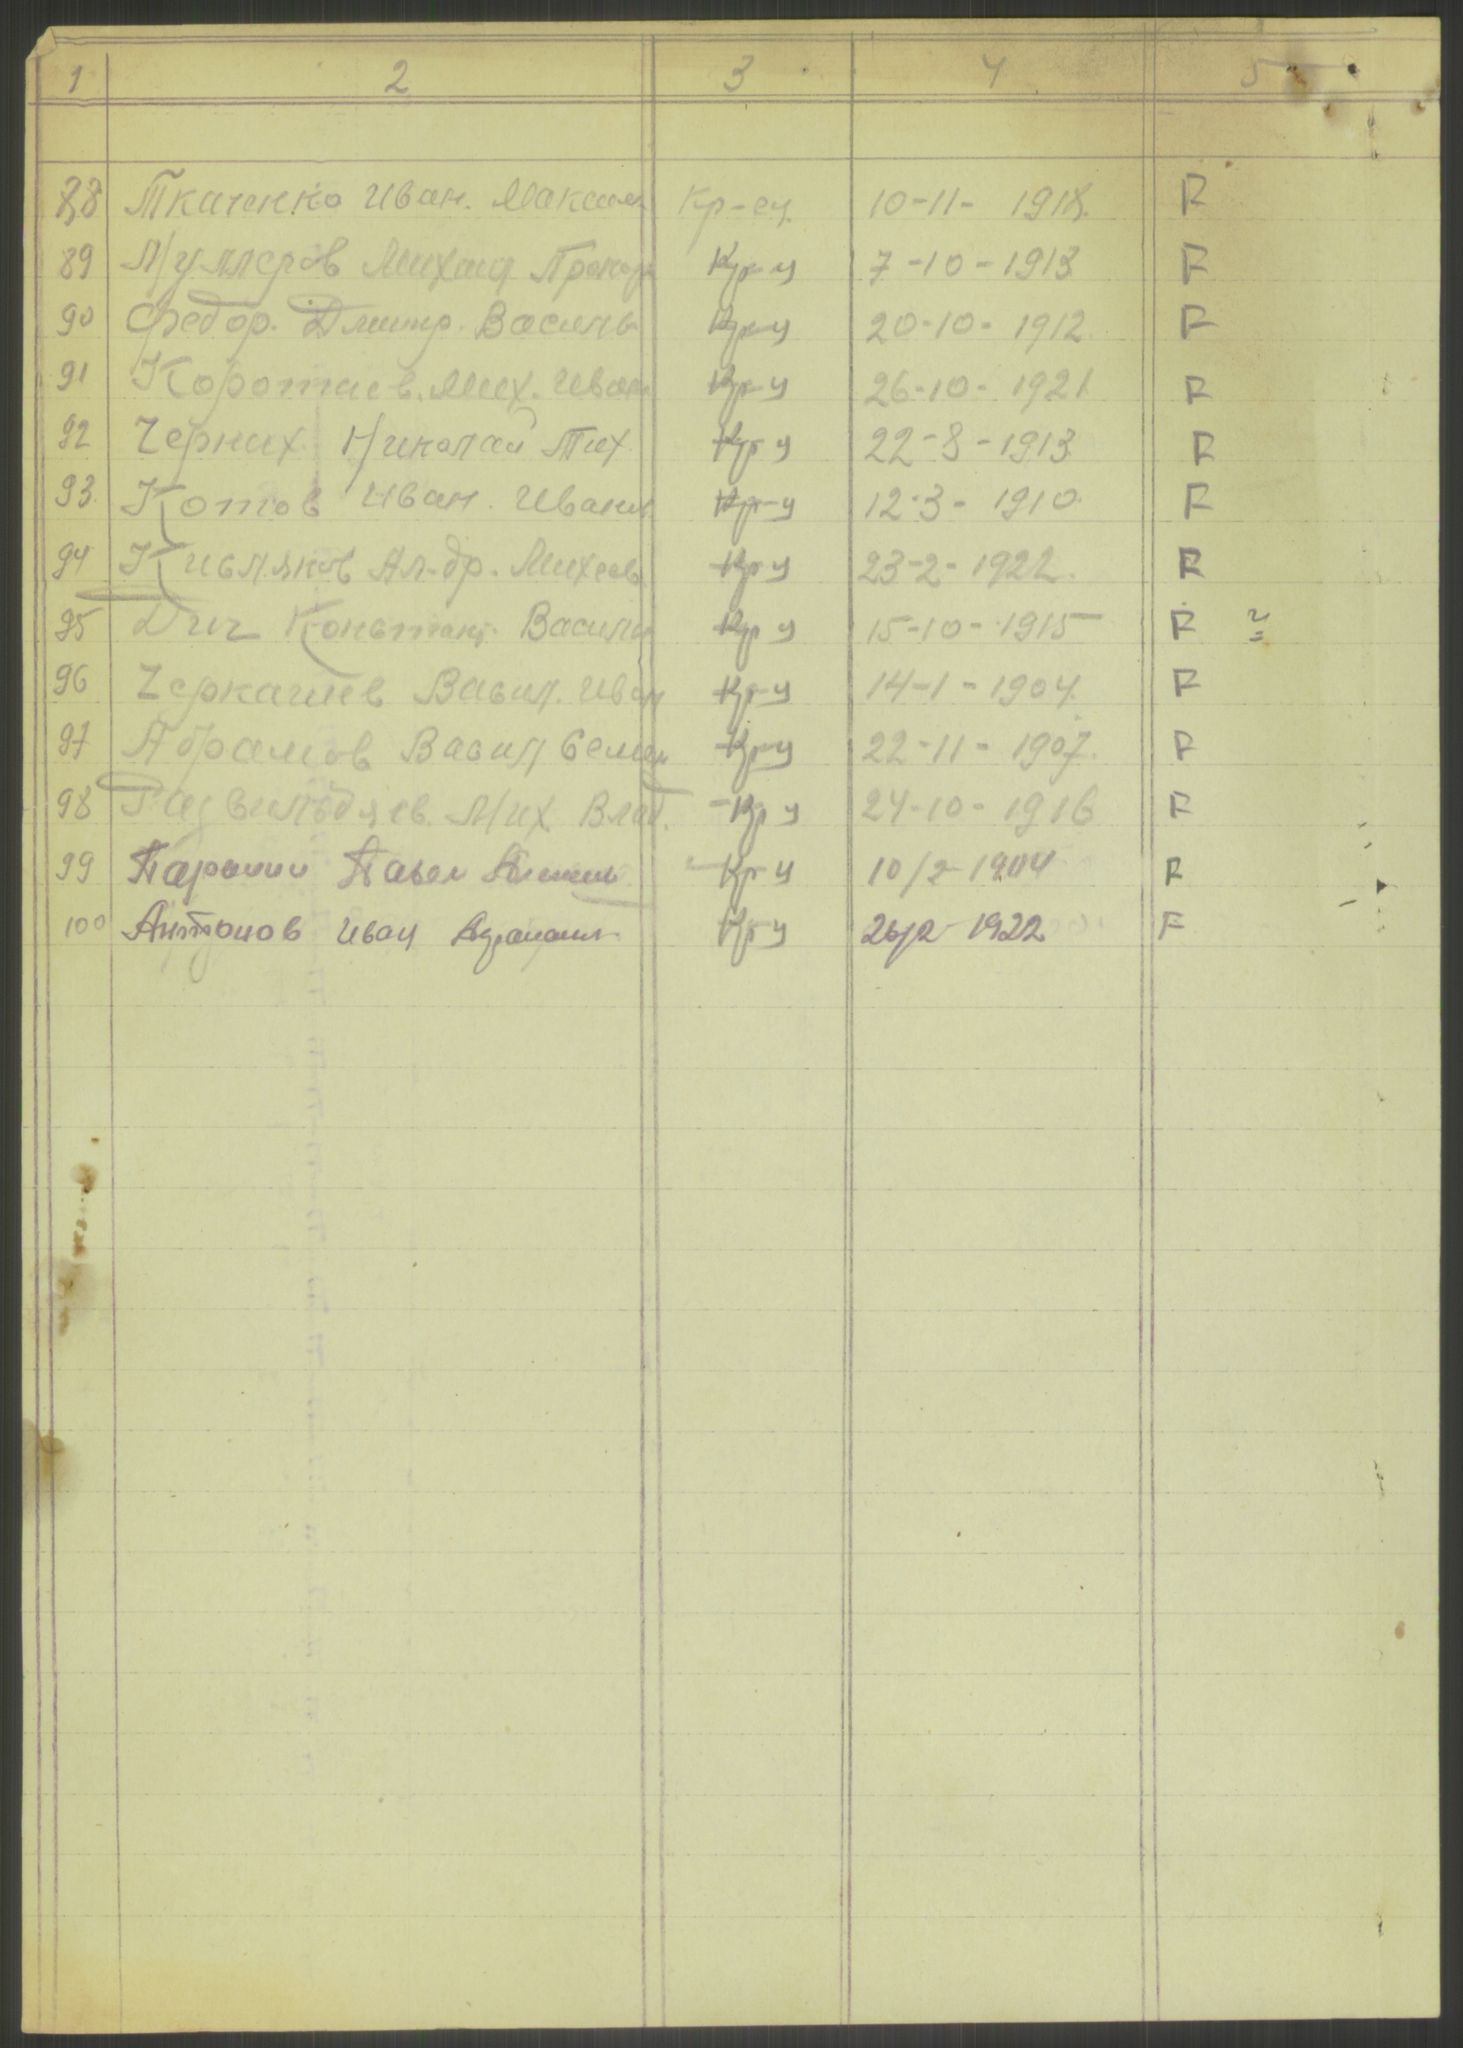 1 2 3 4 5
88 Ткаченко Иван. Максим Кр-ец. 10-11- 1918. R
89 Муллеров Михаил Прокор Кр-ц 7-10-1913 F
90 Федор. Дмитр. Василь Кр-ц 20-10-1912. F
91 Коротаев. Мих. Иван Кр-ц 26-10-1921 R
92 Черних Николай Тих. Кр-ц 22-8-1913 R
93. Котов Иван. Иванов Кр-ц 12-3-1910. F
94 Ал-др. Михеев. Кр-ц 23-2-1922. R
95 Дич Констант. Васили Кр-ц 15-10-1915 F
96 Черкашев Васил. Иван Кр-ц 14-1-1904. F
97 Абрамов Васил Семен Кр-ц 22-11-1907. R
98 Мих. Влад. Кр-ц 24-10-1916 R
99 Паршин Павел Кр-ц 10/2-1904 R
100 Антонов Иван Кр-ц 26/2-1922 F